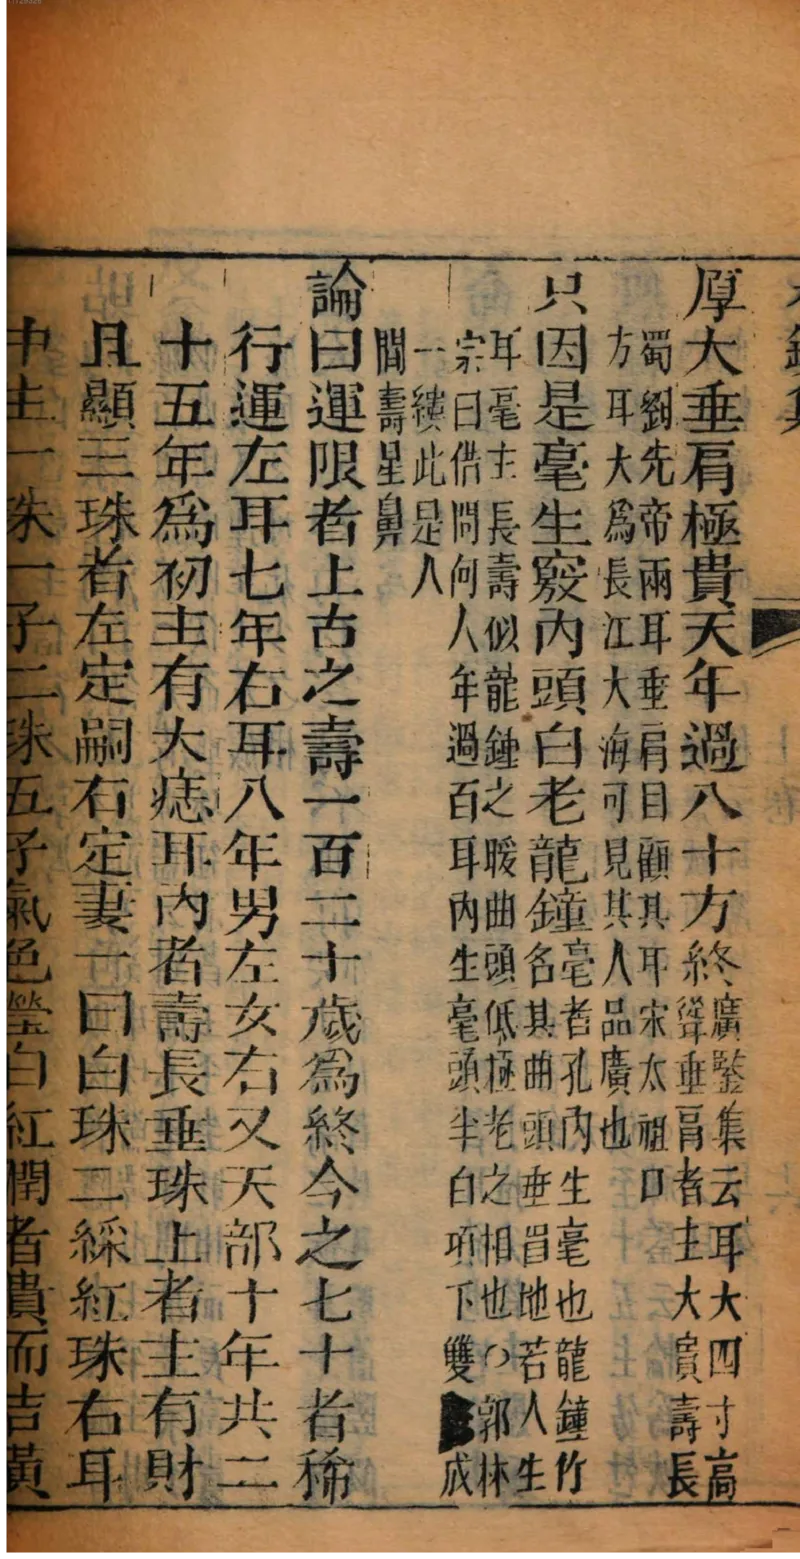 厚大垂肩極貴天年過八十方終
廣鑒集云耳大四寸高
聳垂肩者主大富壽長
蜀劉先帝兩耳垂肩目顧其耳宋太祖口
方耳大爲長江大海可見其人品廣也
只因是毫生竅內頭白老龍鐘
毫者孔內生毫也龍鐘竹
名其曲頭垂眉地若人生
耳毫主長壽似龍鍾之暖曲頭低極老之相也〇郭林
宗曰借問何人年過百耳內生毫頭半白項下雙成
一縷此是人
間壽星鼻
論曰運限者上古之壽一百二十歲爲終今之七十者稀
行運左耳七年右耳八年男左女右又天部十年共二
十五年爲初主有大痣耳內者壽長垂珠上者主有財
且顯三珠者左定嗣右定妻一曰白珠二綵紅珠右耳
中主一朱一子二珠五子氣色瑩白紅閏者貴而吉黃